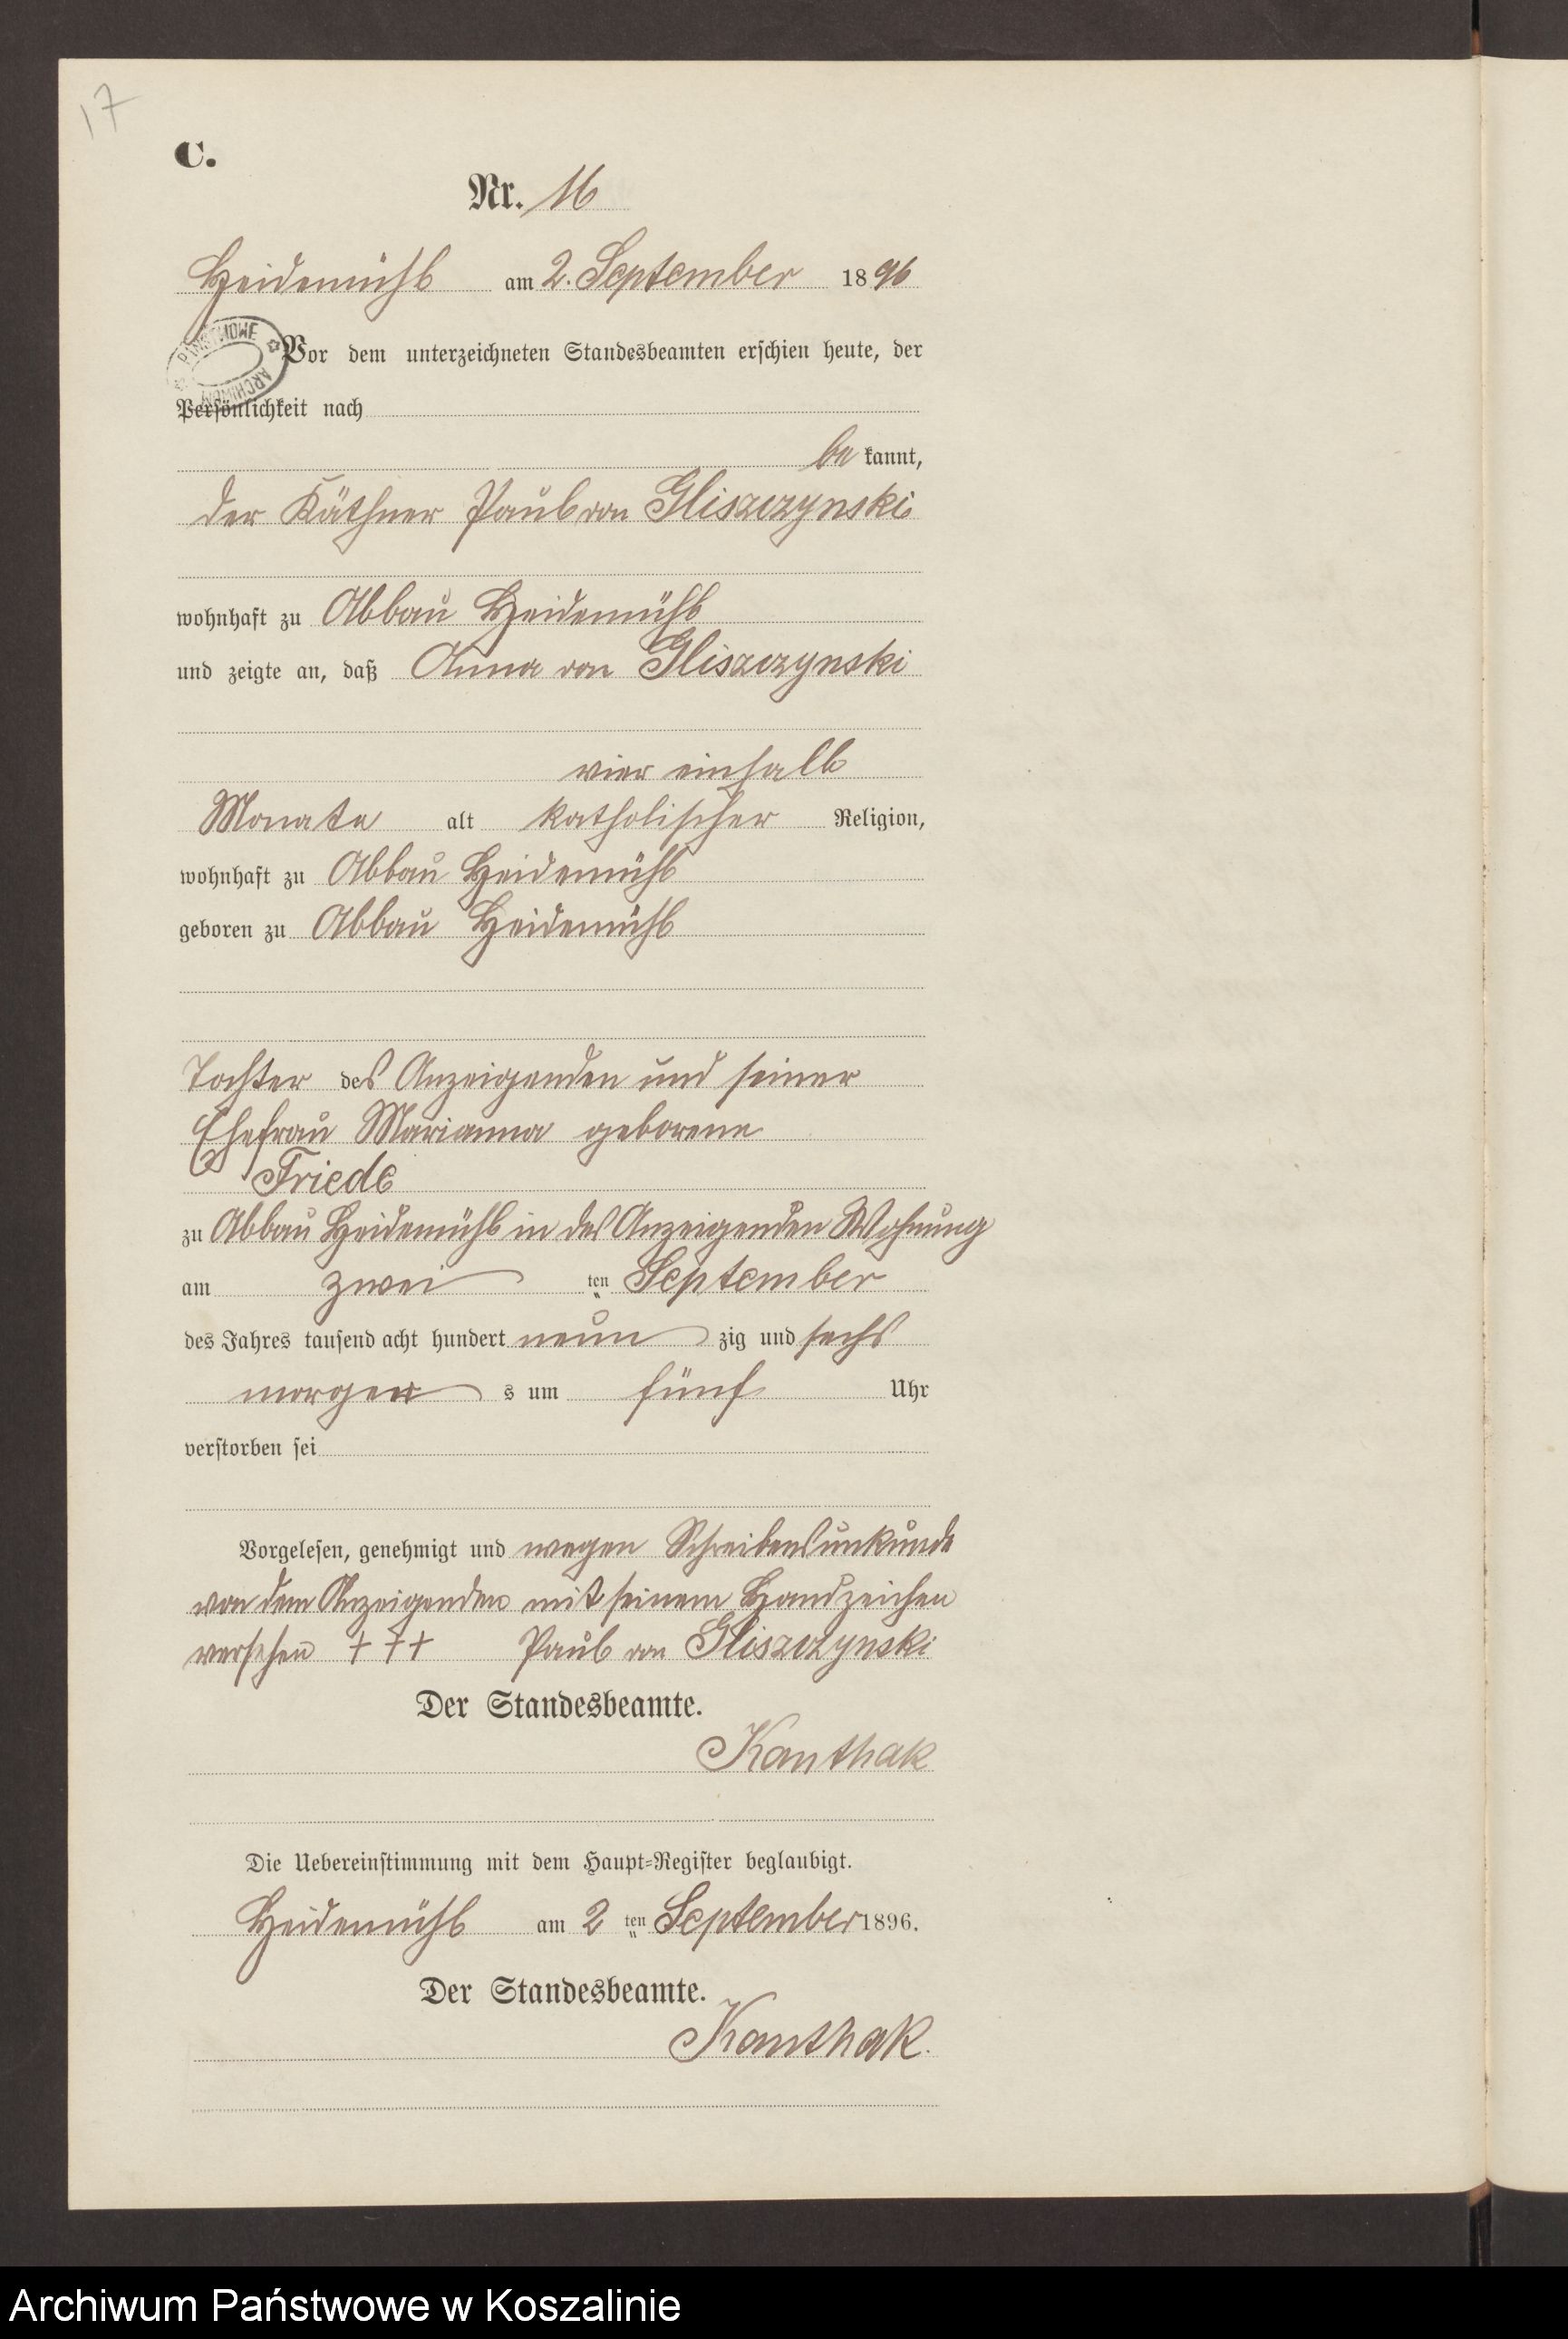 17
C.
Nr. 16
Heidemühl am 2. September 1896
Vor dem unterzeichneten Standesbeamten erschien heute, der
Persönlichkeit nach
be kannt,
der Käthner Paul von Gliszczynski
wohnhaft zu Abbau Heidemühl
und zeigte an, daß Anna von Gliszczynski
vier einhalb
Monate alt katholischer Religion,
wohnhaft zu Abbau Heidemühl
geboren zu Abbau Heidemühl
Tochter des Anzeigenden und seiner
Ehefrau Marianna geborene
Friede
zu Abbau Heidemühl in des Anzeigenden Wohnung
am zwei ten September
des Jahres tausend acht hundert neun zig und sechs
morgen s um fünf Uhr
verstorben sei
Vorgelesen, genehmigt und wegen Schreibensunkunde
von dem Anzeigenden mit seinem Handzeichen
versehen +++ Paul von Gliszczynski
Der Standesbeamte.
Kanthak
Die Uebereinstimmung mit dem Haupt=Register beglaubigt.
Heidemühl am 2 ten September 1896.
Der Standesbeamte.
Kanthak.
Archiwum Państwowe w Koszalinie